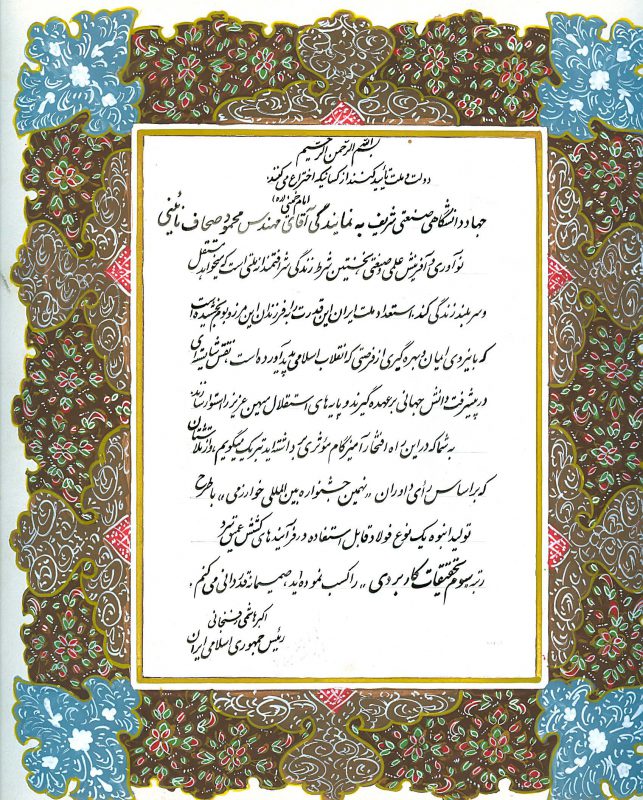 بسم الله الرحمن الرحیم
دولت و ملت تایید کنند از کسانیکه اختراع می کنند.
امام خمینی (ره)
جهاد دانشگاهی صنعتی شریف به نمایندگی آقای مهندس محمود صحاف نائینی
نوآوری و آفرینش علمی و صنعتی نخستین شرط زندگی شرافتمندانه ملتی است که میخواهد مستقل
و سربلند زندگی کند، استعداد ملت ایران این قدرت را به فرزندان این مرز و بوم بخشیده است
که با نیروی ایمان و بهره گیری از فرصتی که انقلاب اسلامی پدید آورده است، نقش شایسته ای
در پیشرفت دانش جهانی بر عهده گیرند و پایه های استقلال میهن عزیز را استوار سازند.
به شما که در این راه افتخارآمیز گام مؤثری برداشته اید تبریک میگویم، و از تلاشتان
که بر اساس رأی داوران «نهمین جشنواره بین المللی خوارزمی» با طرح
تولید انبوه یک نوع فولاد قابل استفاده در فرآیندهای کشش عمیق سرد
رتبه سوم تحقیقات کاربردی» را کسب نموده اید، صمیمانه قدردانی می کنم.
اکبر هاشمی رفسنجانی
رئیس جمهوری اسلامی ایران